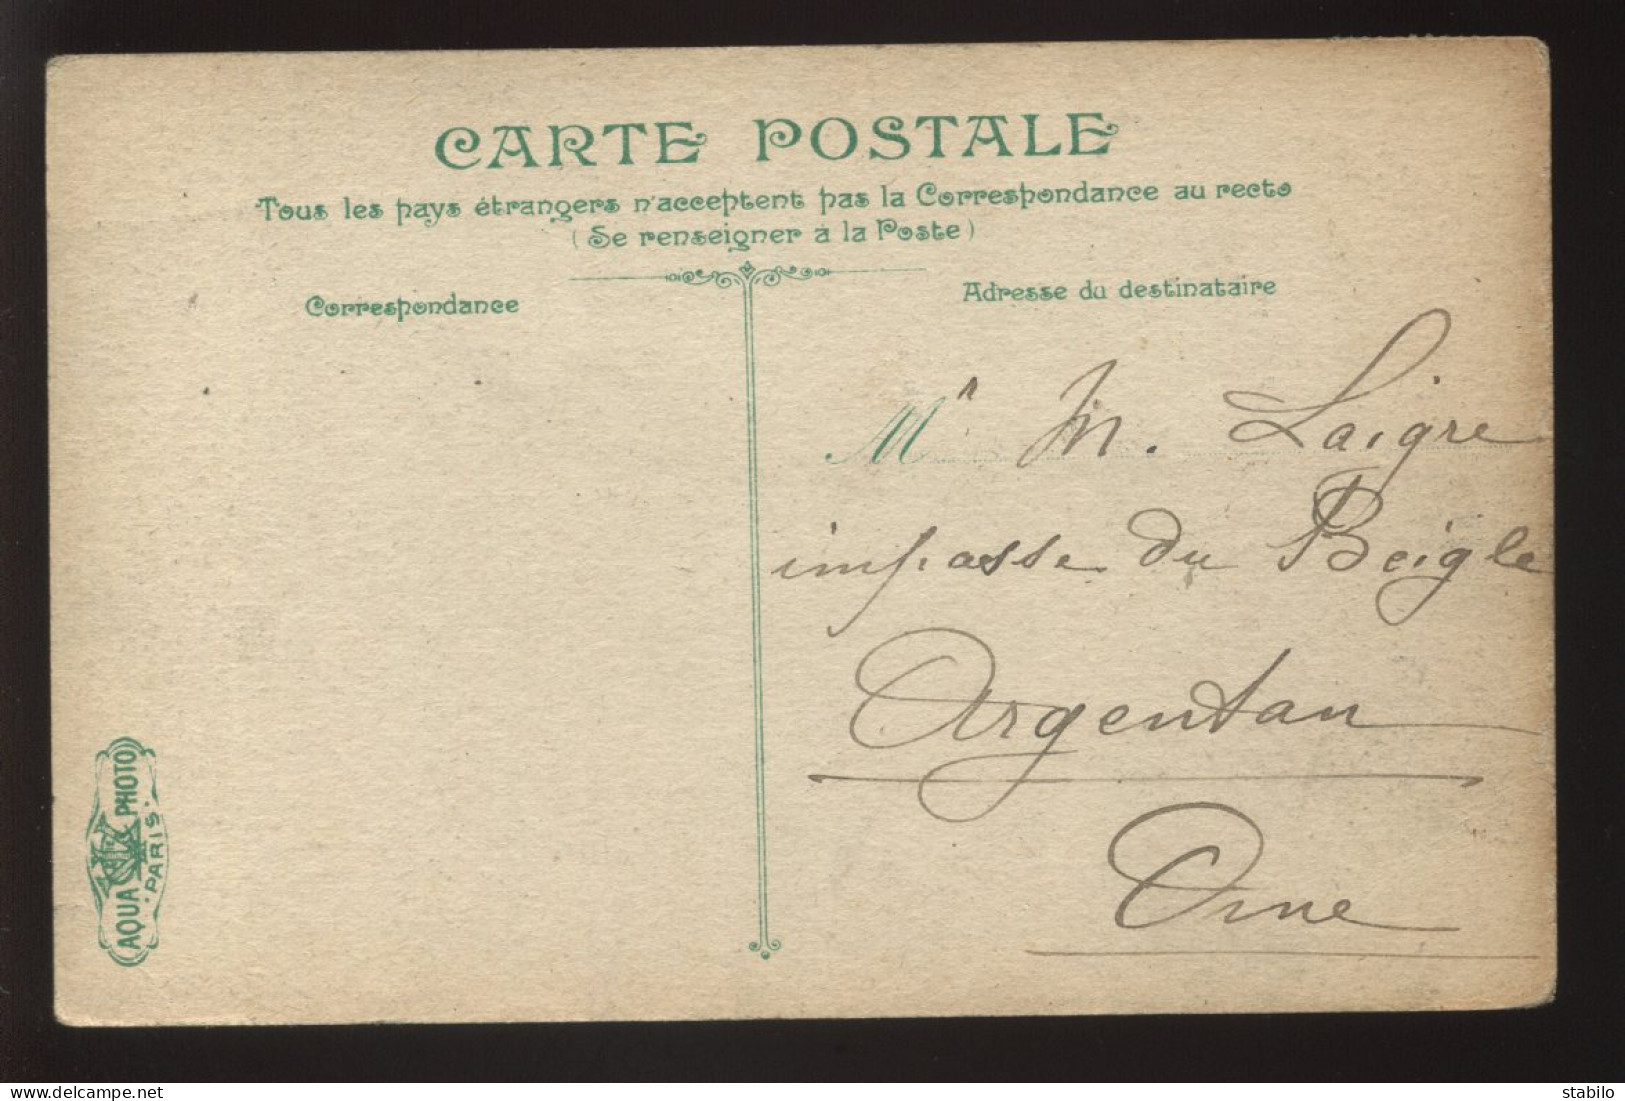 CARTE POSTALE
Tous les pays étrangers n'acceptent pas la Correspondance au recto
(Se renseigner à la Poste)
Correspondance
Adresse du destinataire
Mr M. Laigre
impasse du Beigle
Argentan
Orne
AQUA PHOTO
PARIS
stabilo